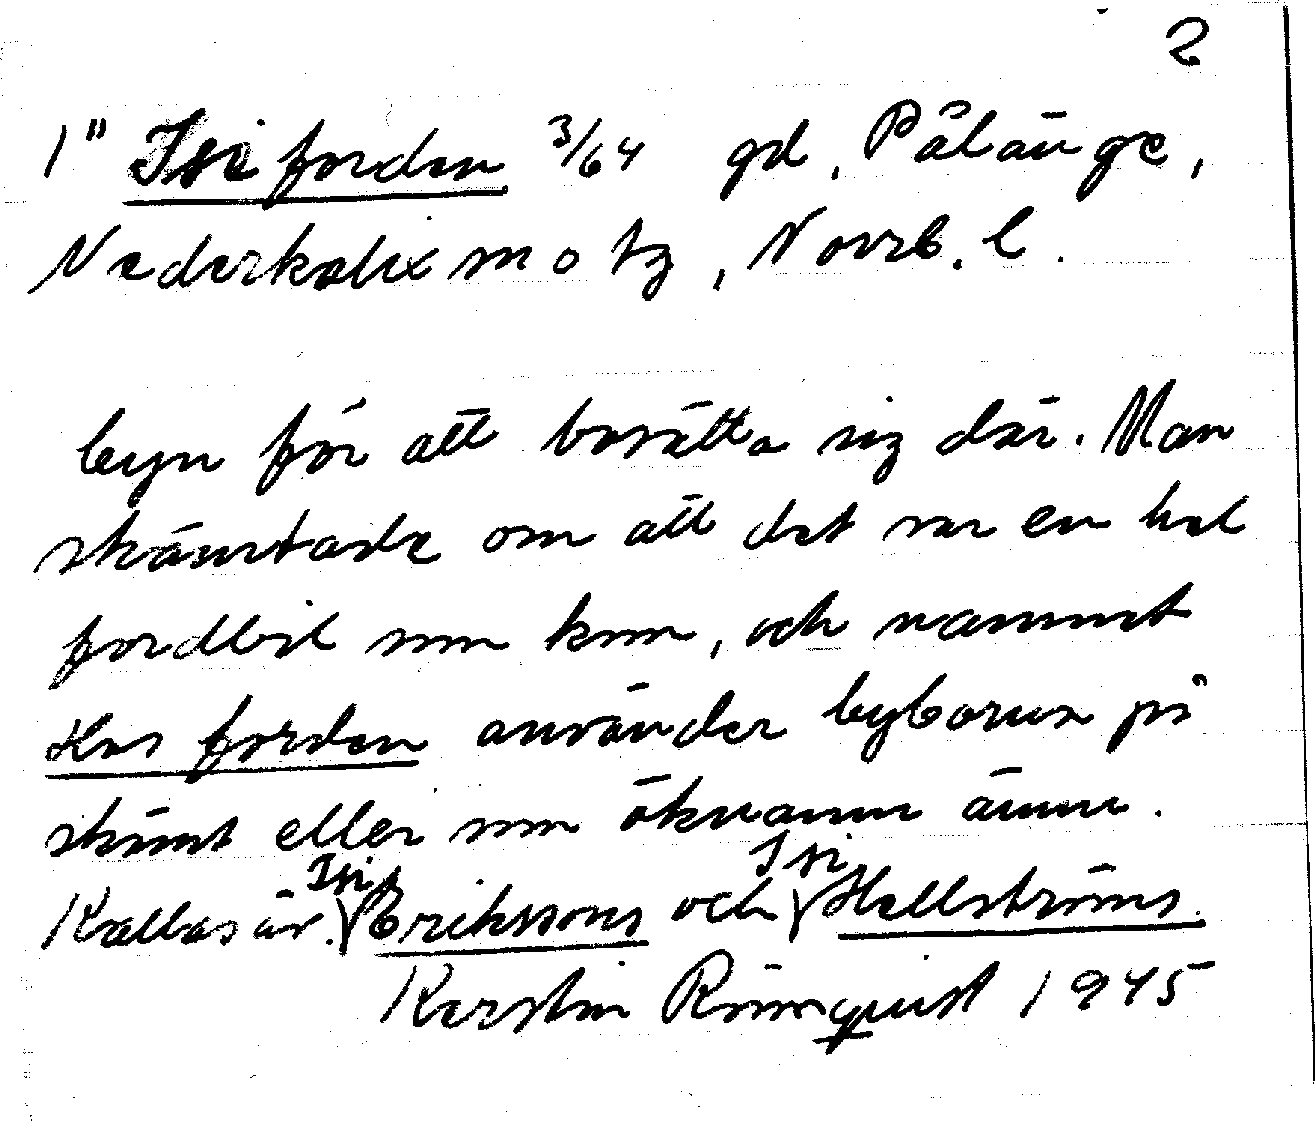 2
1" Isi forden 3/64 gd, Pålänge,
Nederkalix m o tg, Norrb. l.
byn för att bosätta sig där. Man
skämtade om att det var en hel
fordbil som kom, och namnet
forden använder byborna på
skämt eller som öknamn ännu.
Kallas äv. Isi Erikssons och Isi Hellströms.
Kerstin Rönnquist 1945